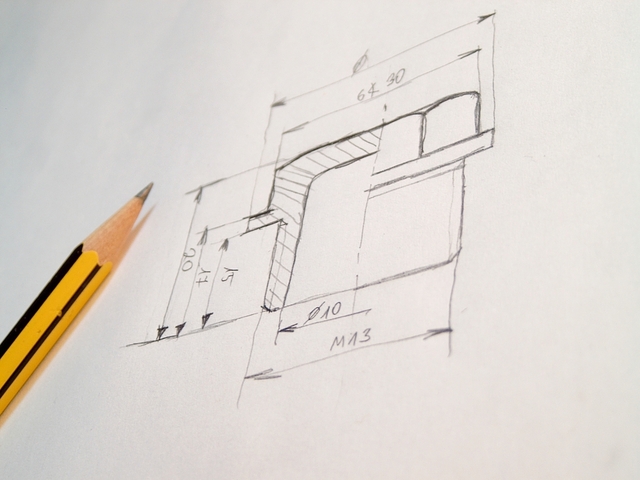 ø
64 30
20
17
15
ø10
M13